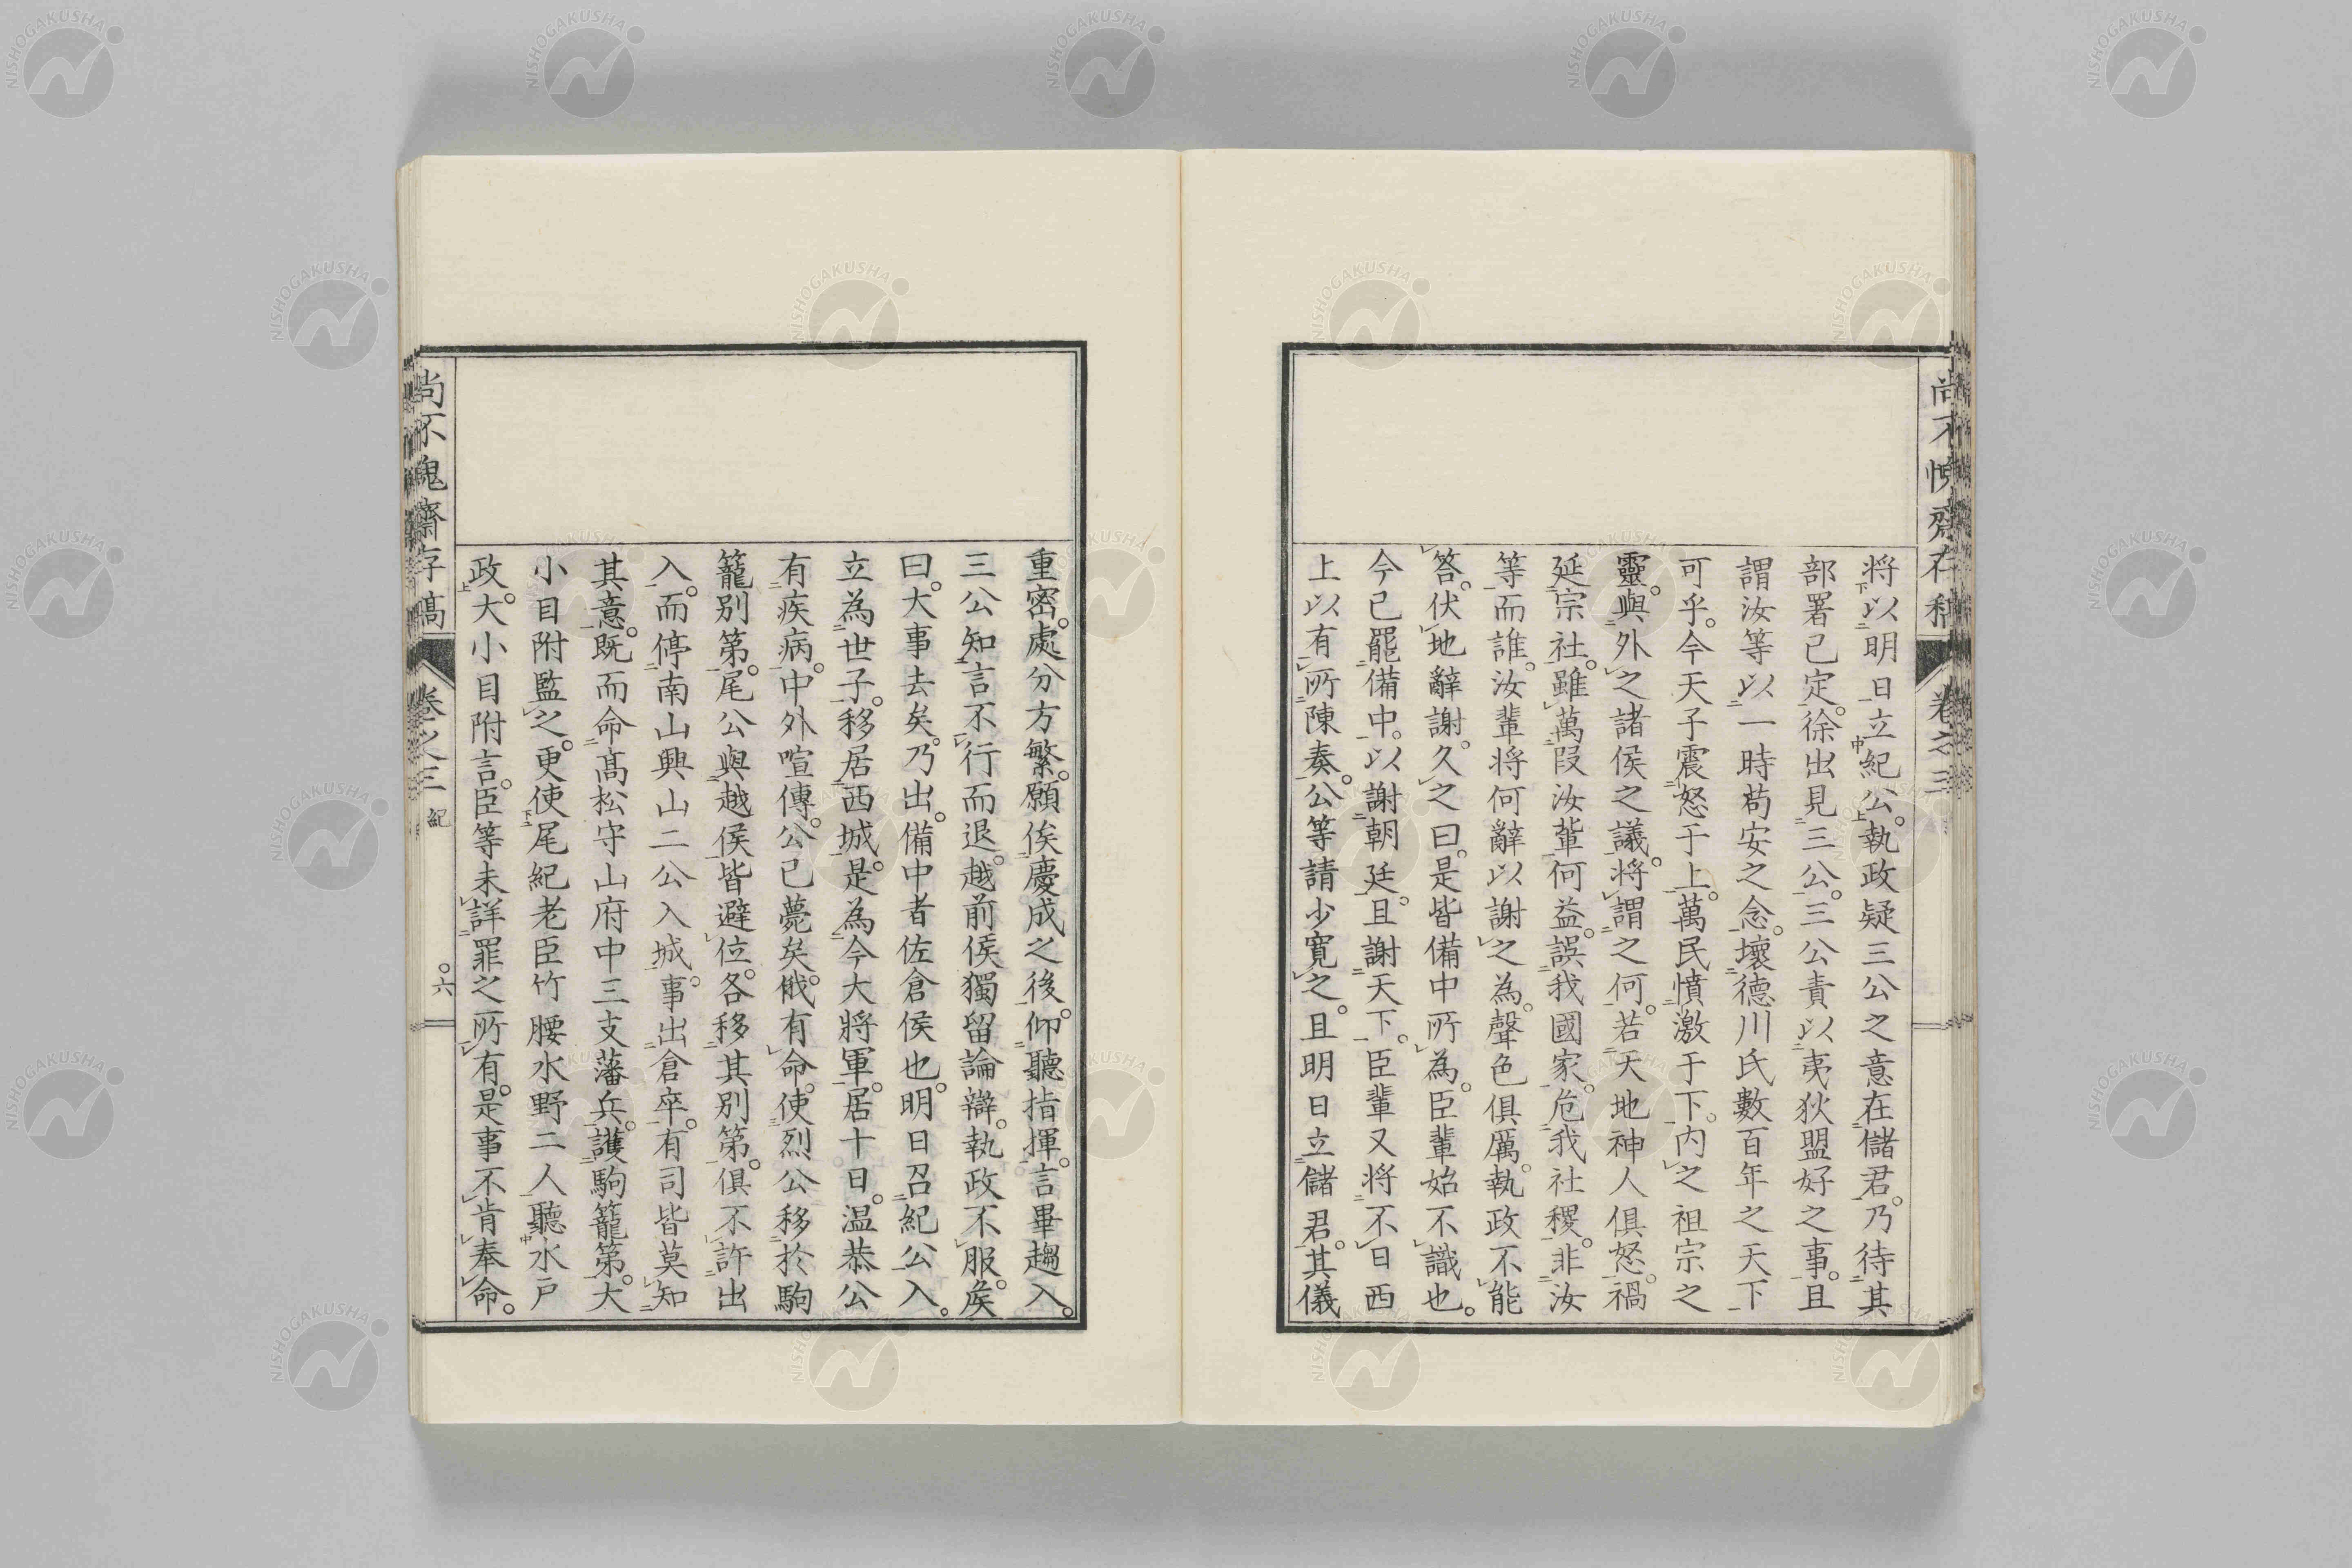 尚不愧齋存稿 卷之三
将以明日立紀公。執政疑三公之意在儲君。乃待其
部署已定。徐出見三公。三公責以夷狄盟好之事。且
謂汝等以一時苟安之念。壞德川氏數百年之天下
可乎。今天子震怒于上。萬民憤激于下。内之祖宗之
靈。與外之諸侯之議。將謂之何。若天地神人俱怒。禍
延宗社。雖萬段汝輩何益。誤我國家。危我社稷。非汝
等而誰。汝輩将何辭以謝之為。聲色俱厲。執政不能
答。伏地辭謝。久之曰。是皆備中所為。臣輩始不識也。
今已罷備中。以謝朝廷。且謝天下。臣輩又将不日西
上以有所陳奏。公等請少寬之。且明日立儲君。其儀
重密。處分方繁。願俟慶成之後。仰聽指揮。言畢趨入。
三公知言不行而退。越前侯獨留論辯。執政不服。矦
曰。大事去矣。乃出。備中者佐倉侯也。明日召紀公入。
立為世子。移居西城。是為今大將軍。居十日。温恭公
有疾病。中外喧傳。公已薨矣。俄有命。使烈公移於駒
籠別第。尾公與越侯皆避位。各移其別第。俱不許出
入。而停南山興山二公入城。事出倉卒。有司皆莫知
其意。既而命髙松守山府中三支藩兵。護駒籠第。大
小目附監之。更使尾紀老臣竹腰水野二人聽水戸
政。大小目附言。臣等未詳罪之所有。是事不肯奉命。
尚不愧齋存稿 卷之三 紀 六
NISHOGAKUSHA